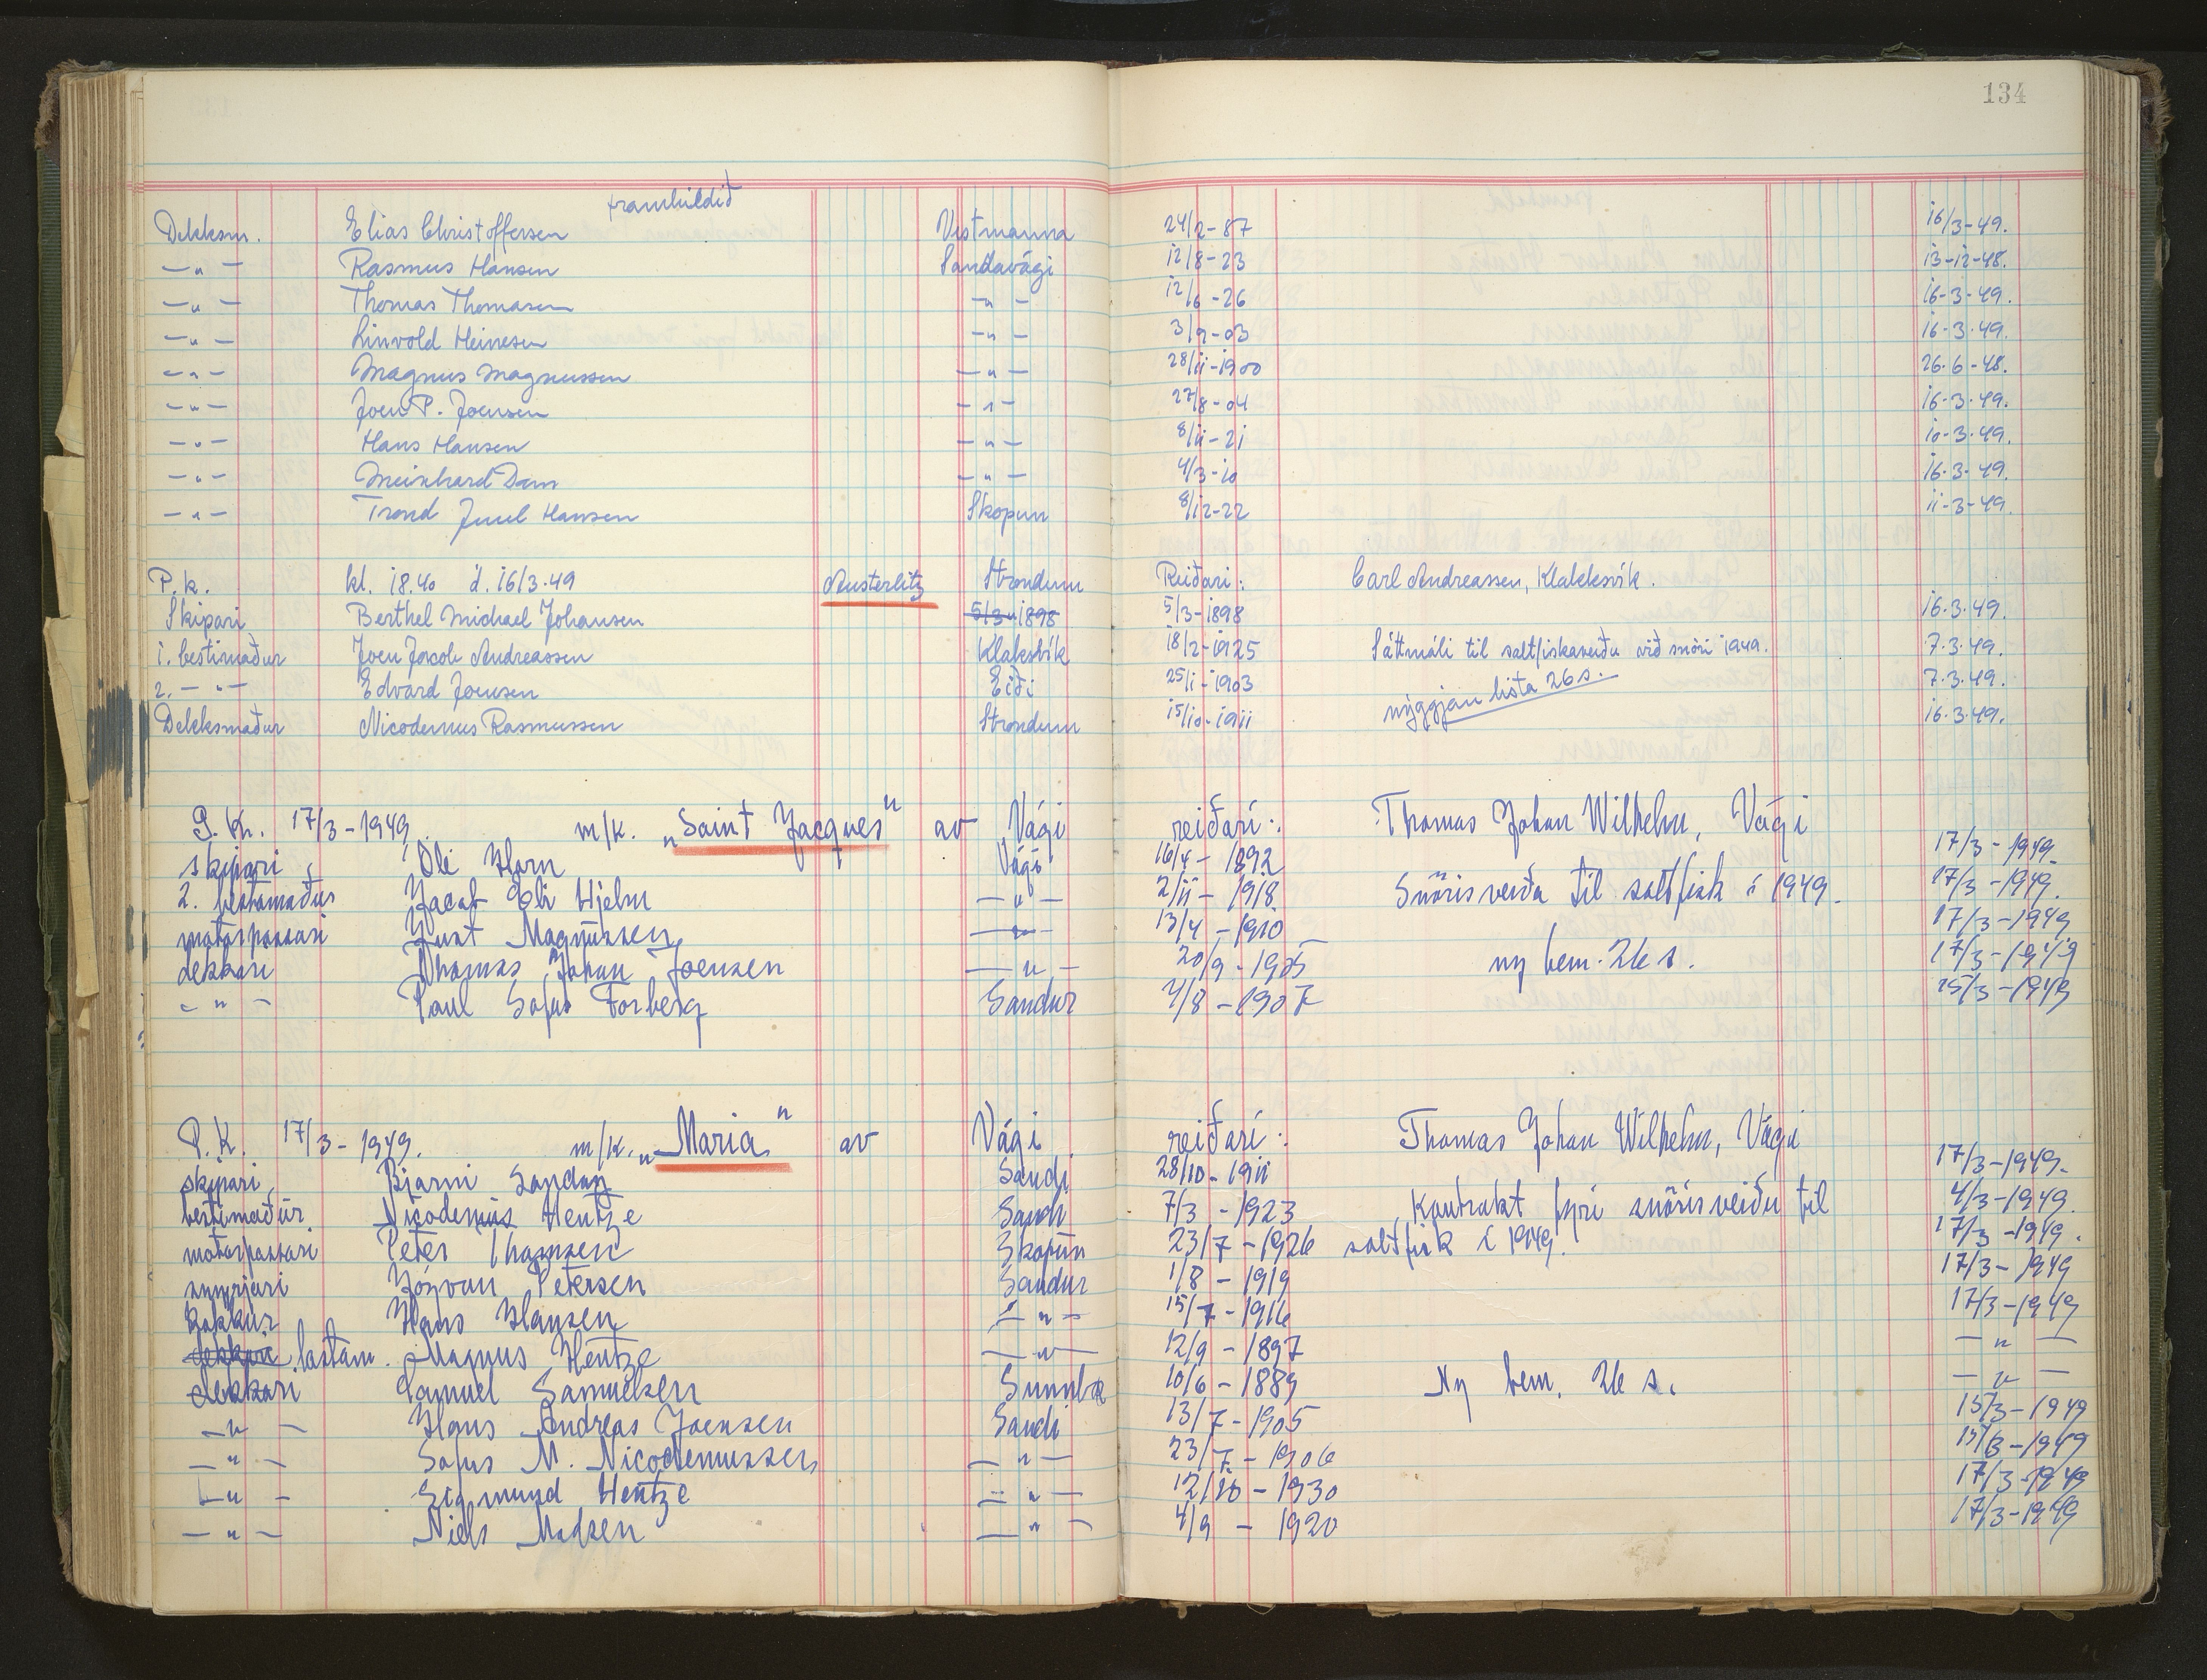 134
framhildið
Dekksm. Elias Christoffersen Vestmanna 24/2-87 16/3-49.
-"- Rasmus Hansen Sandavági 12/8-23 13-12-48.
-"- Thomas Thomasen -"- 12/6-26 16-3-49.
-"- Linvold Heinesen -"- 3/9-03 16-3-49.
-"- Magnus Magnussen -"- 28/11-1900 26-6-48.
-"- Joen P. Joensen -"- 27/8-04 16-3-49.
-"- Hans Hansen -"- 8/11-21 10-3-49.
-"- Meinhard Dam -"- 4/3-10 16-3-49.
-"- Trond Juul Hansen Skopun 8/12-22 11-3-49.
P.k. kl. 18.40 d. 16/3-49 Austerlitz Strondum Reiðari: Carl Andreassen, Klakksvík.
Skipari Berthel Michael Johansen 5/3-1898 5/3-1898 16.3.49.
1. bestimaður Joen Jacob Andreassen Klaksvík 18/2-1925 Sáttmáli til saltfiskaveiðu við snöri 1949. 7.3.49.
2. -"- Edvard Joensen Eiði 25/1-1903 nýggjan lista 26 s. 7.3.49.
Dekksmaður Nicodemus Rasmussen Strondum 15/10-1911 16.3.49.
P.K. 17/3-1949. m/k. "Saint Jacques" av Vági reiðari: Thomas Johan Wilhelm, Vági
skipari Oli Horn Vági 16/4-1892 17/3-1949.
2. bestimaður Jacob Eli Hjelm -"- 2/11-1918 Snörisveiða til saltfisk í 1949. 17/3-1949.
motorpassari Just Magnussen -"- 13/4-1910 17/3-1949
dekkari Thomas Johan Joensen -"- 20/9-1905 ny bem. 26 s. 17/3-1949
-"- Poul Sofus Forberg Sandur 4/8-1907 15/3-1949
P.K. 17/3-1949. m/k. "Maria" av Vági reiðari: Thomas Johan Wilhelm, Vági
skipari Bjarni Sandoy Sandi 28/10-1911 17/3-1949.
bestimaður Nicodemus Hentze Sandi 7/3-1923 Kontrakt fyri snörisveiðu til 4/3-1949.
motorpassari Peter Thomsen Skopun 23/7-1926 saltfisk í 1949. 17/3-1949.
smyrjari Jógvan Petersen Sandur 1/8-1919 17/3-1949
Kokkur Hans Clausen -"- 15/7-1916 17/3-1949
dekkari lastam. Magnus Hentze -"- 12/9-1897 -"-
dekkari Samuel Samuelsen Sumbø 10/6-1889 Ny bem. 26 s. -"-
-"- Hans Andreas Joensen Sandi 13/7-1905 15/3-1949
-"- Sofus M. Nicodemussen -"- 23/7-1906 15/3-1949
-"- Sigmund Hentze -"- 12/10-1930 17/3-1949
-"- Niels Madsen -"- 4/9-1920 17/3-1949